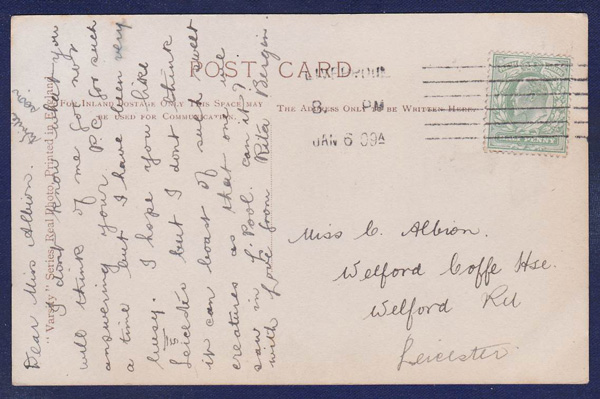 POST CARD.
"Varsity" Series, Real Photo, Printed in England
FOR INLAND POSTAGE ONLY THIS SPACE MAY
BE USED FOR COMMUNICATION.
THE ADDRESS ONLY TO BE WRITTEN HERE.
LIVERPOOL
8 PM
JAN 6 09A
Write
soon.
Dear Miss Albion.
I dont know what you
will think of me for not
answering your P.C. for such
a time but I have been very
busy. I hope you like
Leicester but I dont think
it can boast of such sweet
creatures as that one we
saw in L'Pool. can it?
with Love from Rita Bergin.
Miss C. Albion.
Welford Coffe Hse.
Welford Rd
Leicester.